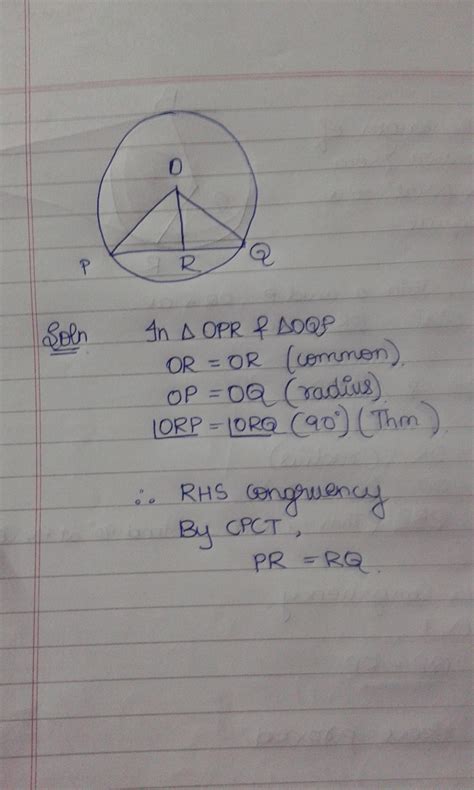 O
P R Q
Soln In △ OPR & △OQP
OR = OR (common)
OP = OQ (radius)
∠ORP = ∠ORQ (90°) (Thm)
∴ RHS congruency
By CPCT,
PR = RQ.